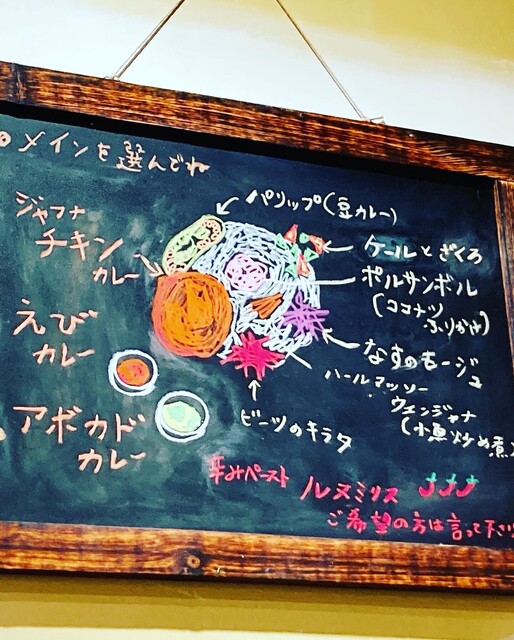 メインを選んでね
ジャフナ
チキン
カレー
えび
カレー
アボカド
カレー
パリップ(豆カレー)
ケールとざくろ
ポルサンボル
(ココナツ
ふりかけ)
なすのモージュ
ハールマッソー
ウェンジャナ
(小魚炒め煮)
ビーツのキラタ
辛みペースト ルヌミリス
ご希望の方は言って下さい